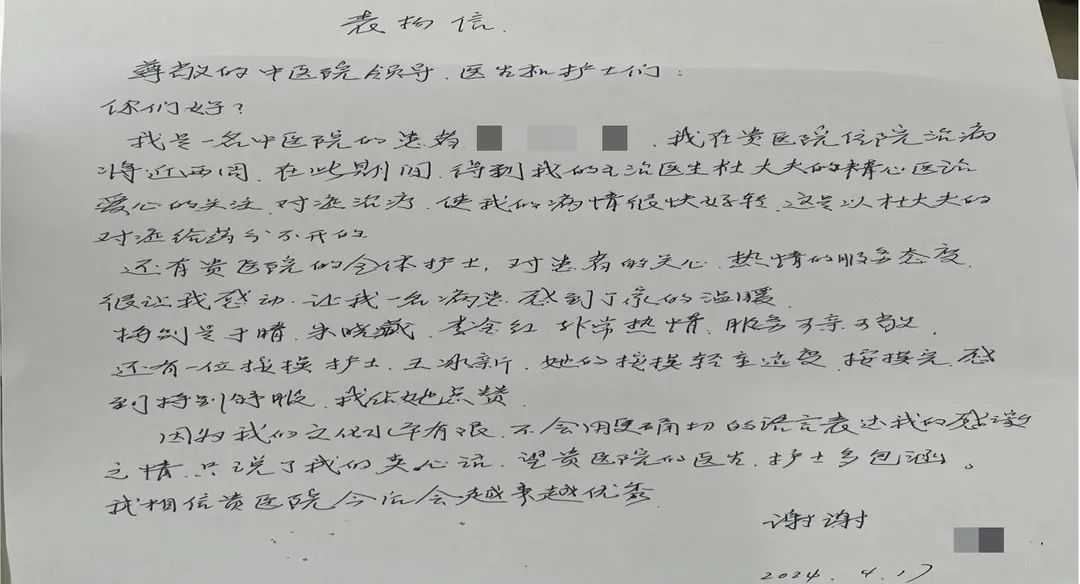 表扬信.
尊敬的中医院领导、医生和护士们:
你们好?
我是一名中医院的患者 , 我在贵医院住院治病
将近两周, 在此期间, 得到我的主治医生杜大夫的精心医治
爱心的关注, 对症治疗, 使我的病情很快好转, 这是以杜大夫的
对症给药分不开的
还有贵医院的全体护士, 对患者的关心, 热情的服务态度,
很让我感动, 让我一名病患, 感到了家的温暖.
特别是于晴, 朱晓藏, 李金红 非常热情, 服务可亲可敬,
还有一位按摸护士, 王冰新, 她的按摸轻重适度, 按摸完, 感
到特别舒服, 我给她点赞.
因为我们文化水平有限, 不会用更确切的语言表达我的感激
之情, 只说了我们真心话, 望贵医院的医生, 护士多包涵。
我相信贵医院今后会越来越优秀
谢谢
2024. 4. 17